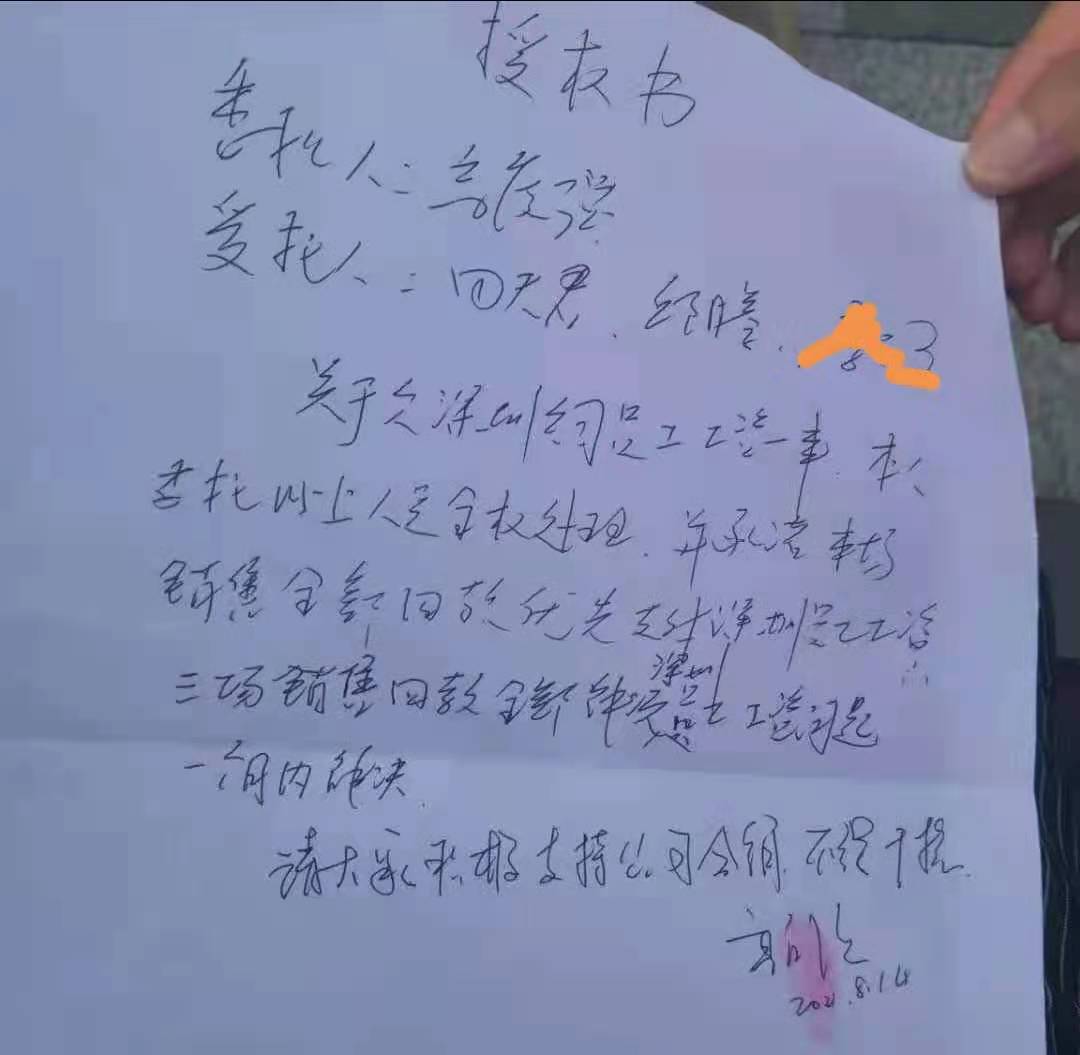 授权书
委托人：高彦强
受托人：田天君、纪晴、
关于欠深圳约员工工资一事，本人
委托以上人员全权处理，并承诺本场
销售全部回款优先支付深圳员工工资
三场销售回款全部解决深圳员工工资问题
一个月内解决.
请大家积极支持公司会销，不得干扰.
2021.8.14